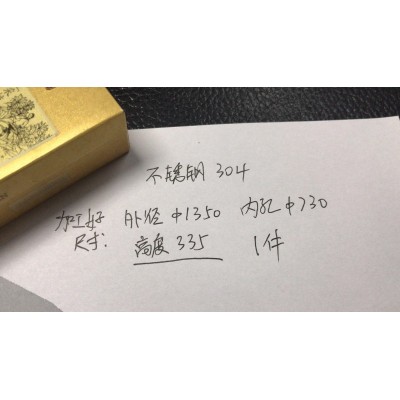 不锈钢 304
加工好 外径 φ1350 内孔 φ730
尺寸: 高度 335 1件